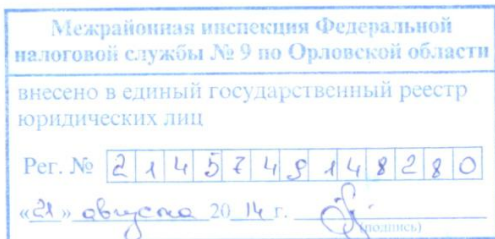 Межрайонная инспекция Федеральной
налоговой службы № 9 по Орловской области
внесено в единый государственный реестр
юридических лиц
Рег. № 2145749148280
«21» августа 2014 г.
(подпись)